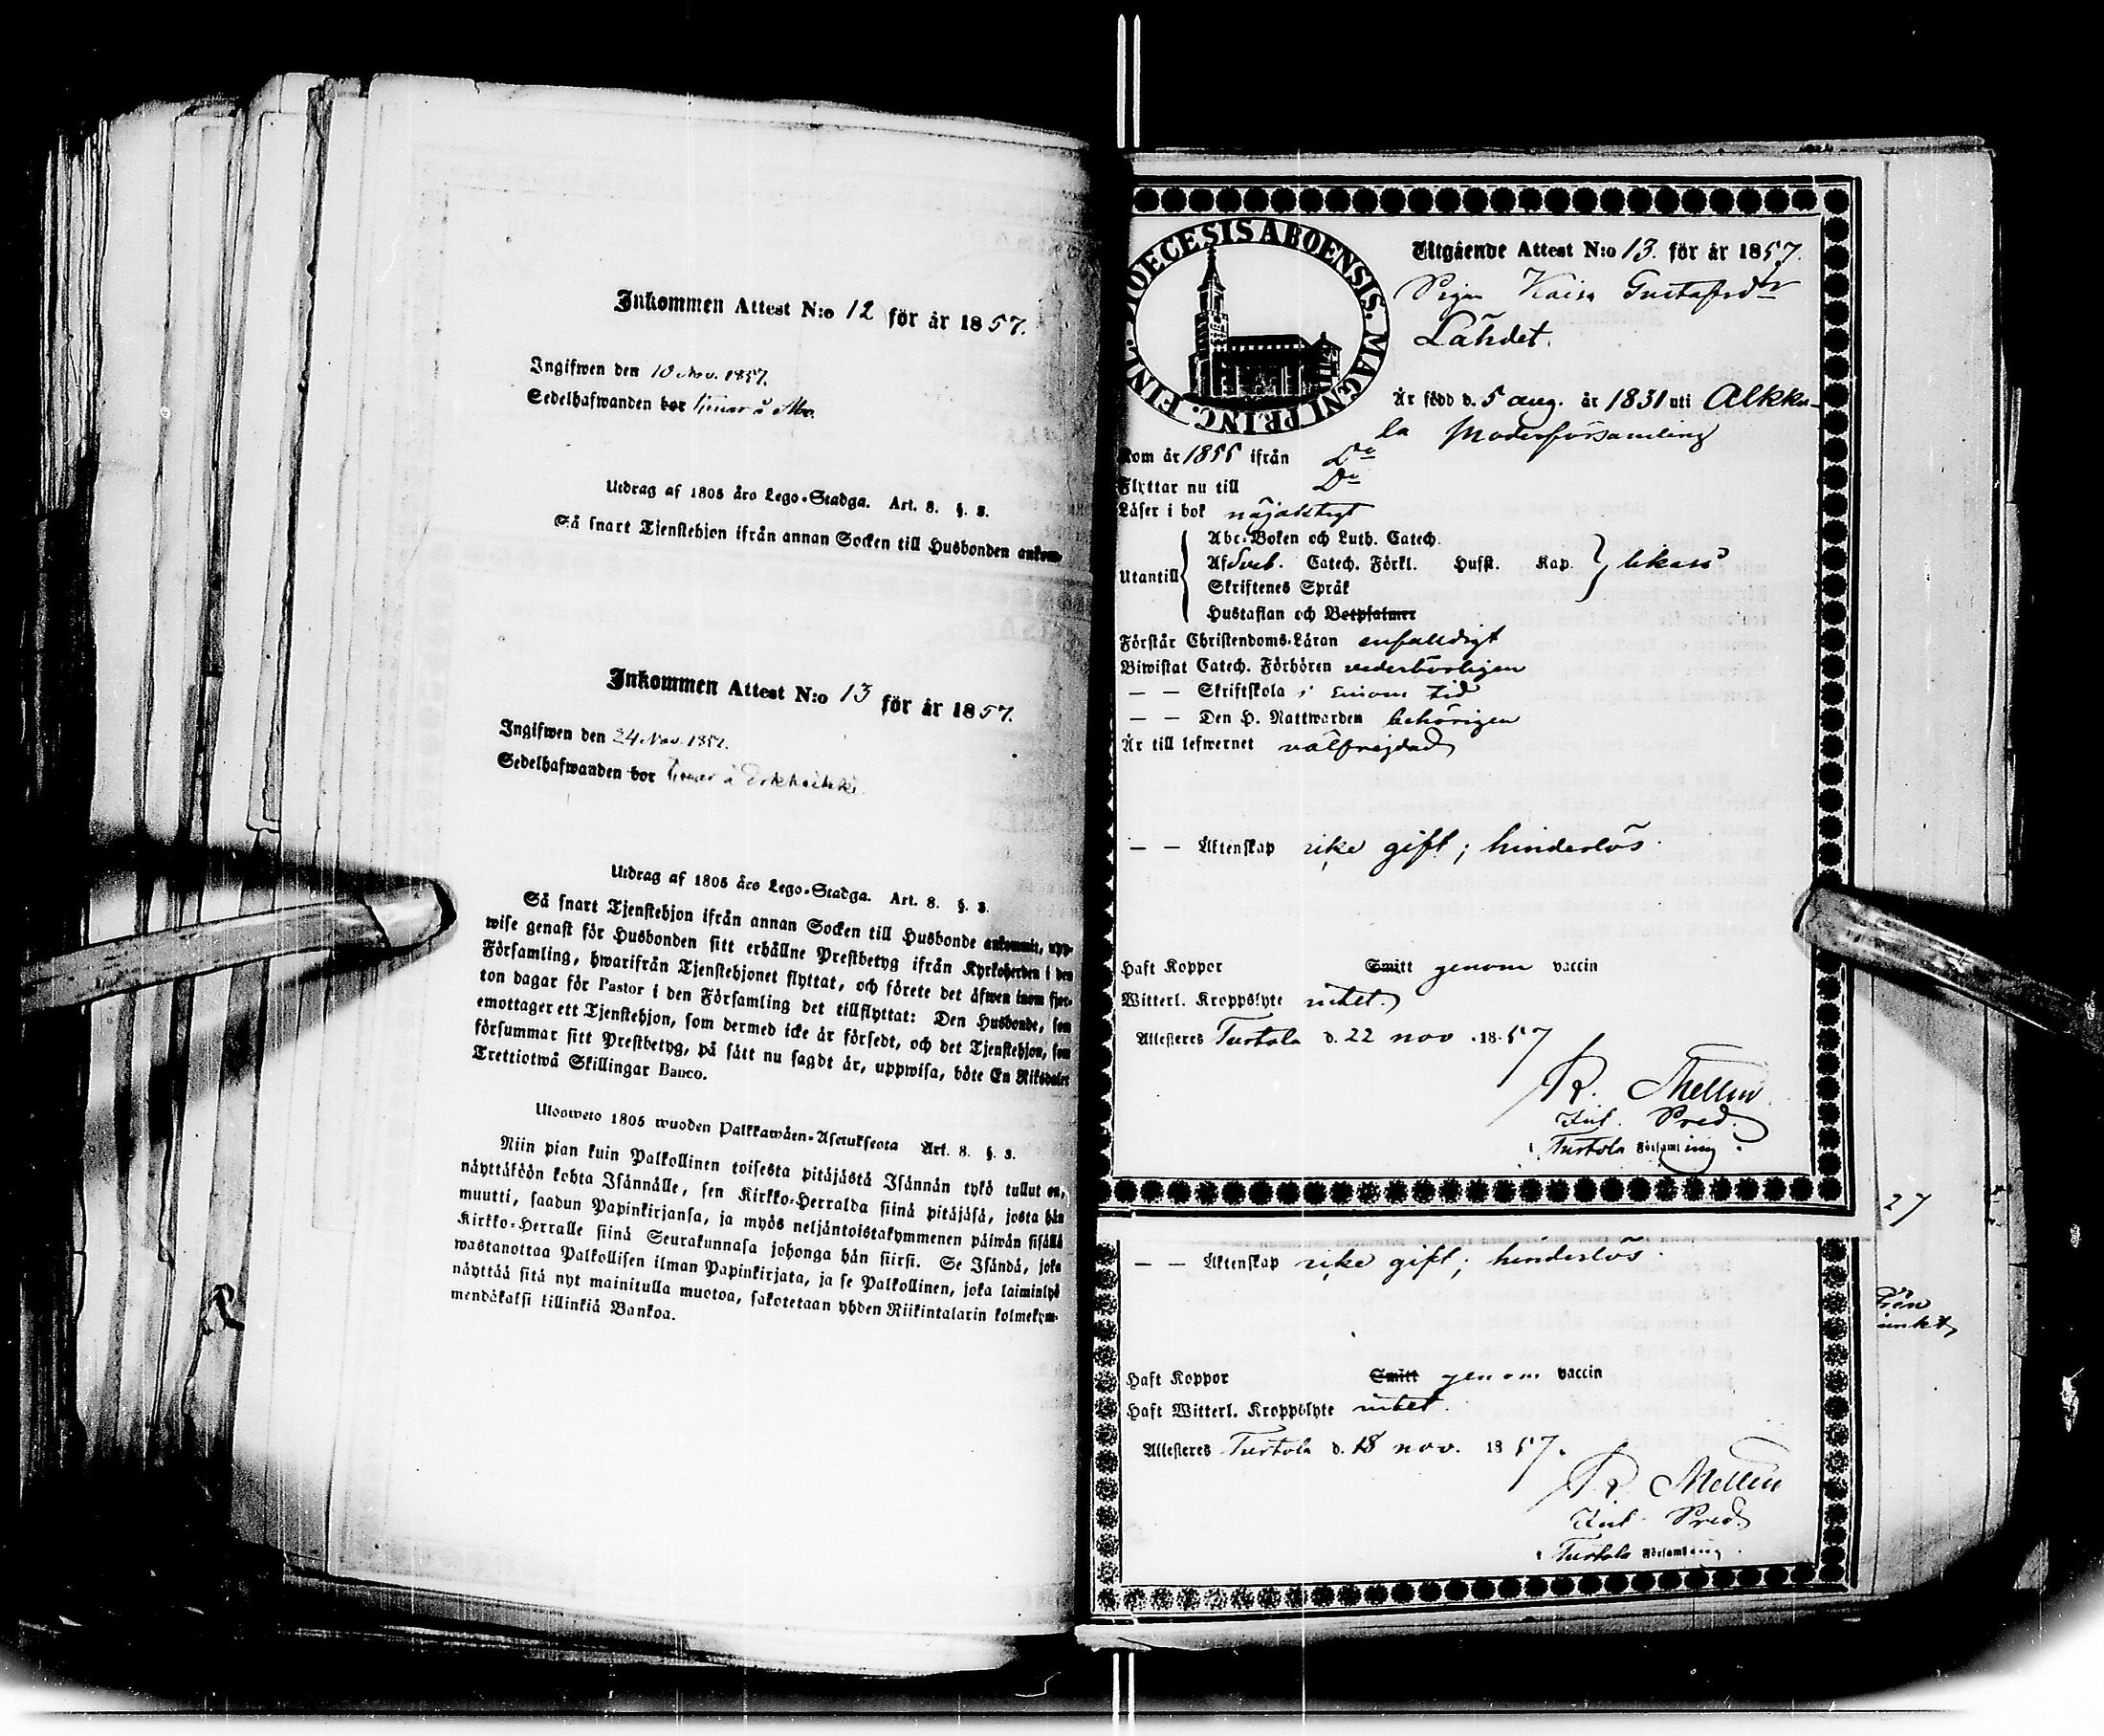 Inkommen Attest N:o 12 för år 1857.
Ingifwen den 10 Nov. 1857.
Sedelhafwanden bor tjenar å Abo.
Utdrag af 1805 års Lego-Stadga. Art. 8. §. 3.
Så snart Tjenstehjon ifrån annan Socken till Husbonden ankom-
Inkommen Attest N:o 13 för år 1857.
Ingifwen den 24 Nov. 1857.
Sedelhafwanden bor
Utdrag af 1805 års Lego-Stadga. Art. 8. §. 3.
Så snart Tjenstehjon ifrån annan Socken till Husbonde ankommit, upp-
wise genast för Husbonden sitt erhållne Prestbetyg ifrån Kyrkoherden i den
Församling, hwarifrån Tjenstehjonet flyttat, och förete det äfwen inom fjor-
ton dagar för Pastor i den Församling det tillflyttat: Den Husbonde, som
emottager ett Tjenstehjon, som dermed icke är försedt, och det Tjenstehjon, som
försummar sitt Prestbetyg, på sätt nu sagdt är, uppwisa, böte En Riksdaler
Trettiotwå Skillingar Banco.
Ulosweto 1805 wuoden Palkkawäen-Asetuksesta Art. 8. §. 3.
Niin pian kuin Palkollinen toisesta pitäjästä Isännän tykö tullut on,
näyttäköön kohta Isännälle, sen Kirkko-Herralda siinä pitäjäsä, josta hän
muutti, saadun Papinkirjansa, ja myös neljäntoistakymmenen päiwän sisällä
Kirkko-Herralle siinä Seurakunnasa johonga hän siirsi. Se Isändä, joka
wastanottaa Palkollisen ilman Papinkirjata, ja se Palkollinen, joka laiminlyö
näyttää sitä nyt mainitulla muotoa, sakotetaan yhden Riikintalarin kolmekym-
mendäkaksi killinkiä Bankoa.
DIOECESIS ABOENSIS. MAGNI PRINC. FINL.
Utgående Attest N:o 13. för år 1857.
Pigan Kaisa Gustafsdr
Lahdet.
Är född d. 5 aug. år 1831 uti Alkku-
la Moderförsamling
Kom år 1856 ifrån Do
Flyttar nu till Do
Läser i bok nöjaktigt
Utantill
Abc-Boken och Luth. Catech.
Af Sveb. Catech. Förkl. Husst. Kap. likaså
Skriftenes Språk
Hustaflan och Botpsalmer
Förstår Christendoms-Läran enfaldigt
Biwistat Catech. Förhören vederbörligen
— — Skriftskola i sinom tid
— — Den H. Nattwarden behörigen
Är till lefwernet välfrejdad
— — Äktenskap icke gift; hinderlös.
Haft Koppor Smitt genom vaccin
Witterl. Kroppslyte intet.
Attesteres Turtola d. 22 nov. 1857
R. Mellin
Kap. Pred.
i Turtola Församling.
27
— — Äktenskap icke gift; hinderlös.
Haft Koppor Smitt genom vaccin
Haft Witterl. Kroppslyte intet.
Attesteres Turtola d. 18 nov. 1857.
R. Mellin
Pred.
i Turtola Församling.